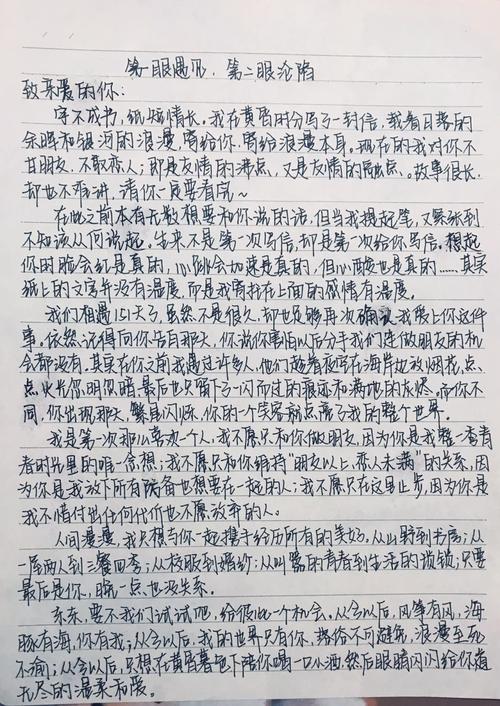 第一眼遇见，第二眼沦陷
致亲爱的你：
字不成书，纸短情长。我在黄昏时分写了一封信，载着日暮的
余晖和银河的浪漫，寄给你，寄给浪漫本身。现在的我对你不
甘朋友，不敢恋人；即是友情的沸点，又是友情的制高点。故事很长，
却也不难讲，请你一定要看完～
在此之前本有无数想要和你说的话，但当我提起笔，又紧张到
不知该从何说起。生来不是第一次写信，却是第一次给你写信，想起
你时脸会红是真的，心跳会加速是真的，但心酸也是真的……其实
纸上的文字并没有温度，而是我寄托在上面的感情有温度。
我们相遇151天了，虽然不是很久，却也足够再次确认我爱上你这件
事。依然记得向你告白那天，你说你害怕以后分手我们连做朋友的机
会都没有。其实在你之前我遇过许多人，他们趁着夜空在海岸边放烟花，点
点火光忽明忽暗，最后也只留下了一闪而过的痕迹和满地的灰烬，而你不
同，你出现那天，繁星闪烁，你的一个笑容就点亮了我的整个世界。
我是第一次那么喜欢一个人，我不愿只和你做朋友，因为你是我整个青
春时光里的唯一念想；我不愿只和你维持“朋友以上，恋人未满”的关系，因
为你是我放下所有防备也想要在一起的人；我不愿只在这里止步，因为你是
我不惜付出任何代价也不愿放弃的人。
人间漫漫，我只想与你一起携手经历所有的美好，从山野到书房；从
一屋两人到三餐四季；从校服到婚纱；从叫嚣的青春到生活的琐锁；只要
最后是你，晚一点也没关系。
东东，要不我们试试吧，给彼此一个机会。从今以后，风筝有风，海
豚有海，你有我；从今以后，我的世界只有你，势俗不可避免，浪漫至死
不渝；从今以后，只想在黄昏暮色下陪你喝一口小酒，然后眼睛闪闪给你道
无尽的温柔和爱。